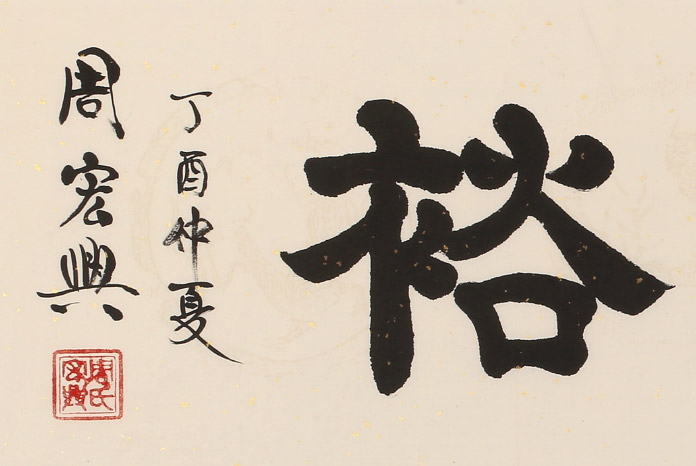 裕
丁酉仲夏
周宏興